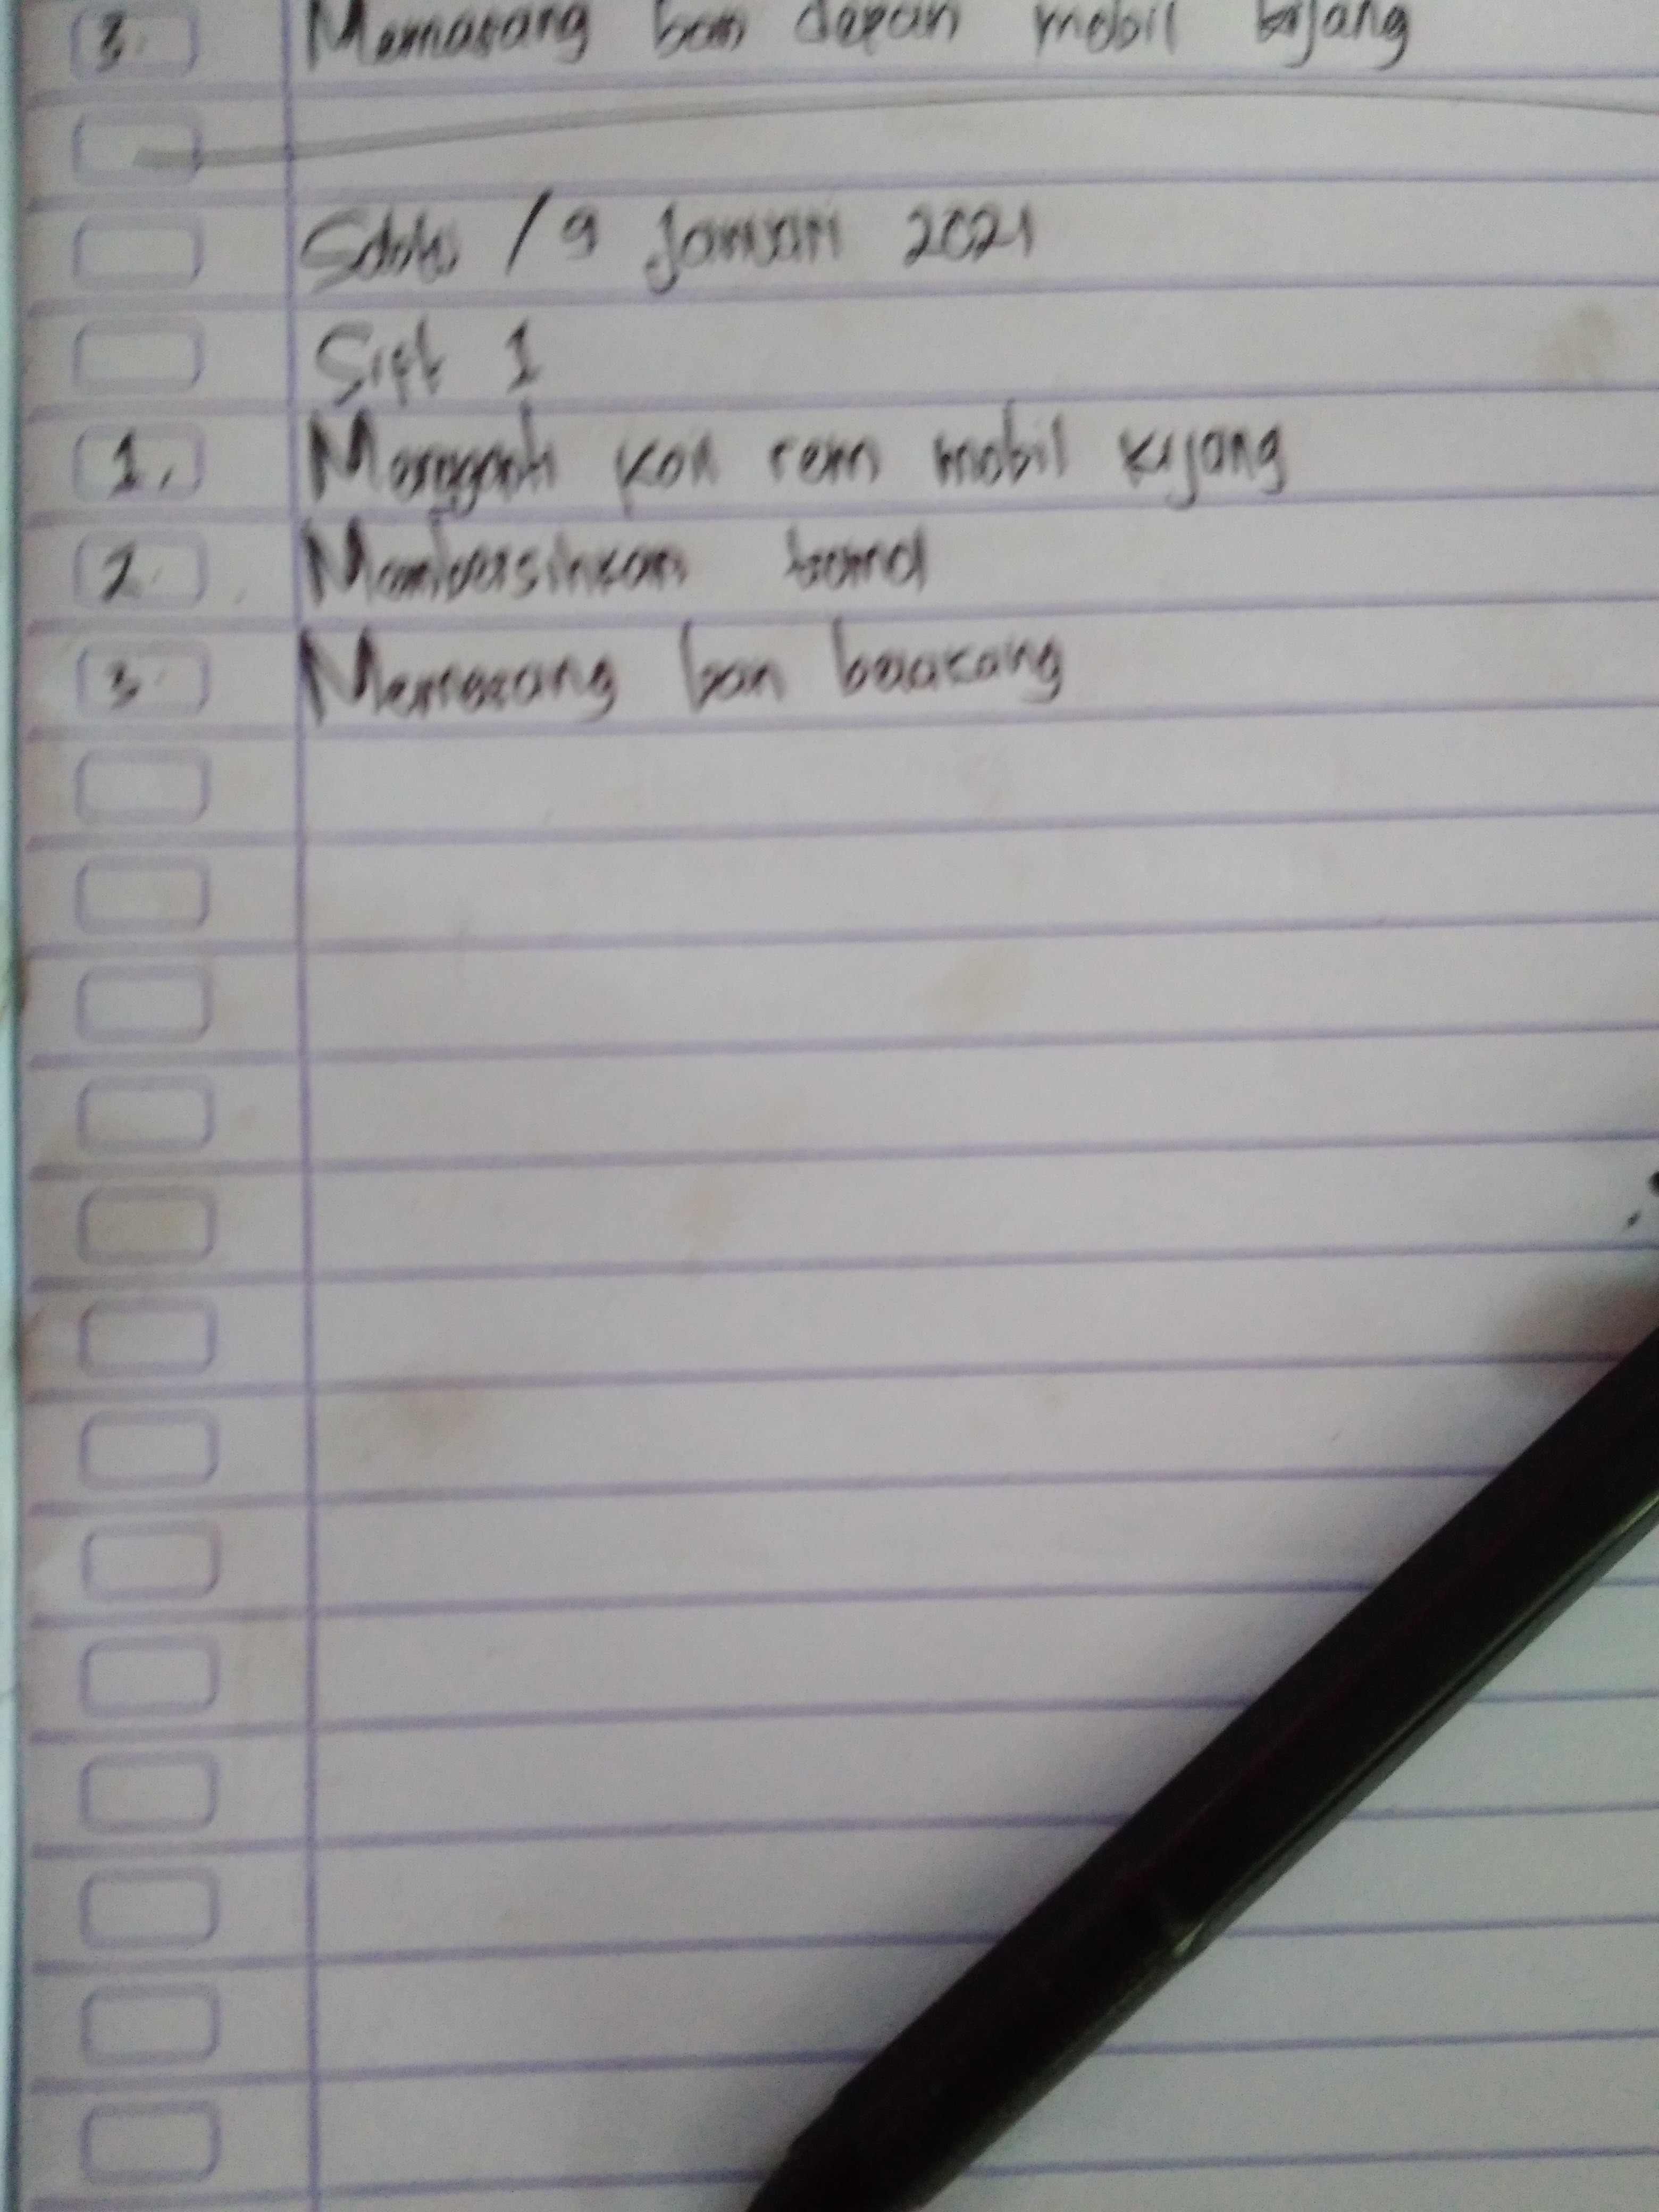 3. Memasang ban depan mobil kijang
Sabtu / 9 Januari 2021
Sift 1
1. Mengganti rem mobil kijang
2. Membersihkan
3. Memasang ban belakang